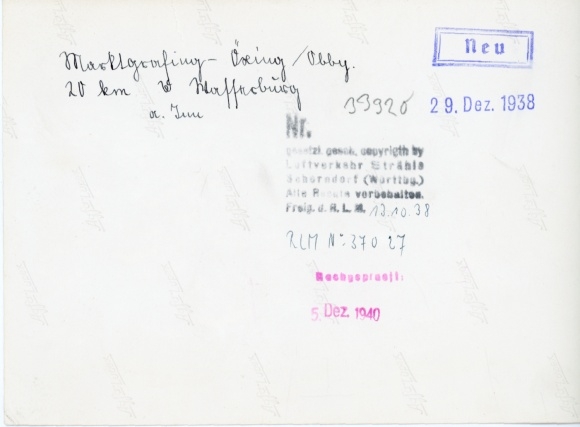 Marktgrafing - Öxing /Obby.
20 km W Wasserburg
a. Inn
Neu
39920
29. Dez. 1938
Nr.
gesetzl. gesch. copyrigth by
Luftverkehr Strähle
Schorndorf (Württbg.)
Alle Rechte vorbehalten.
Freig. d. R. L. M. 13.10.38
RLM No 370 27
5. Dez. 1940